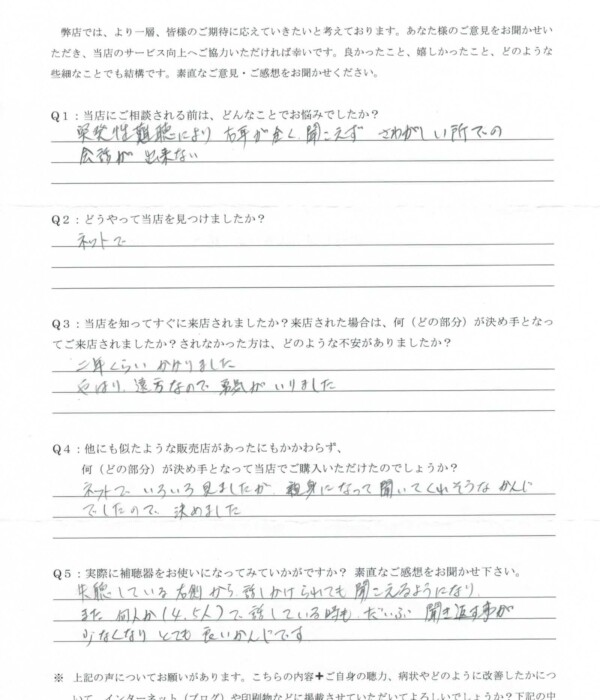 弊店では、より一層、皆様のご期待に応えていきたいと考えております。あなた様のご意見をお聞かせい
ただき、当店のサービス向上へご協力いただければ幸いです。良かったこと、嬉しかったこと、どのような
些細なことでも結構です。素直なご意見・ご感想をお聞かせください。
Q1：当店にご相談される前は、どんなことでお悩みでしたか？
突発性難聴により 右耳が全く聞こえず さわがしい所での
会話が 出来ない
Q2：どうやって当店を見つけましたか？
ネットで
Q3：当店を知ってすぐに来店されましたか？来店された場合は、何（どの部分）が決め手となっ
てご来店されましたか？されなかった方は、どのような不安がありましたか？
二年くらい かかりました
やはり、遠方なので 勇気が いりました
Q4：他にも似たような販売店があったにもかかわらず、
何（どの部分）が決め手となって当店でご購入いただけたのでしょうか？
ネットで いろいろ見ましたが 親身になって聞いてくれそうな かんじ
でしたので 決めました
Q5：実際に補聴器をお使いになってみていかがですか？ 素直なご感想をお聞かせ下さい。
失聴している右側から話しかけられても聞こえるようになり、
また 何人か（4、5人）で話している時も だいぶ 聞き返す事が
少なくなり とても 良いかんじです
※ 上記の声についてお願いがあります。こちらの内容＋ご自身の聴力、病状やどのように改善したかにつ
いて、インターネット（ブログ）や印刷物などに掲載させていただいてよろしいでしょうか？下記の中